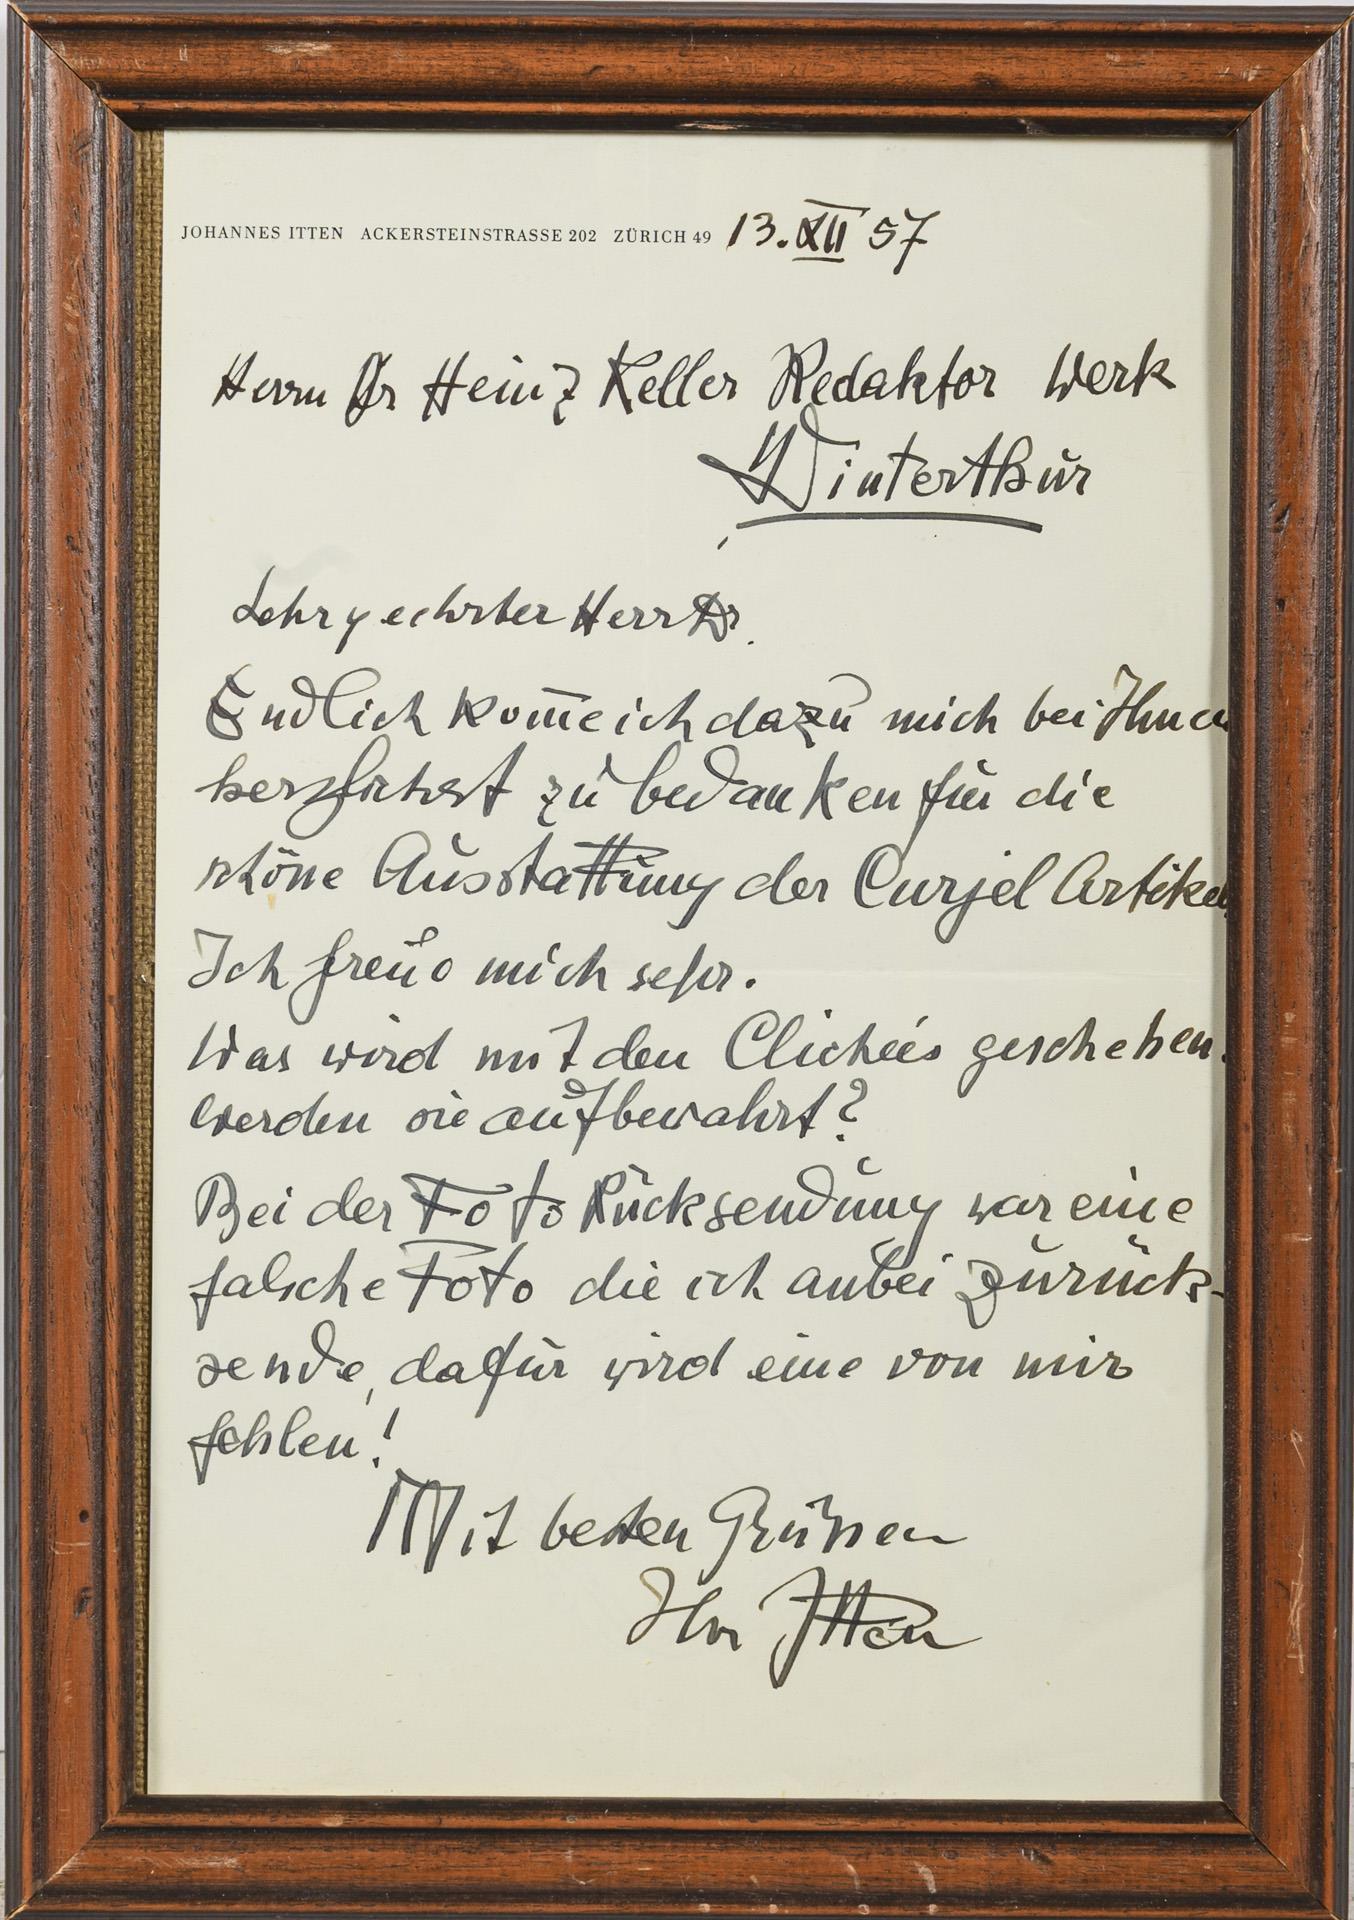 JOHANNES ITTEN ACKERSTEINSTRASSE 202 ZÜRICH 49 13. XII 57
Herrn Dr Heinz Keller Redaktor Werk
Winterthur
Sehr geehrter Herr Dr.
Endlich kom̅e ich dazu mich bei Ihnen
herzlichst zu bedanken für die
schöne Ausstattung der Curjel Artikel.
Ich freue mich sehr.
Was wird mit den Clichées geschehen.
werden sie aufbewahrt?
Bei der Foto Rücksendung war eine
falsche Foto die ich anbei zurück-
sende, dafür wird eine von mir
fehlen!
Mit besten Grüssen
Ihr Itten